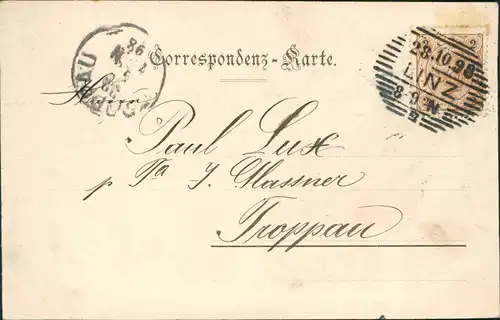 Correspondenz-Karte.
23.10.98
LINZ
Herrn
Paul Lux
p Fa J. Glassner
Troppau